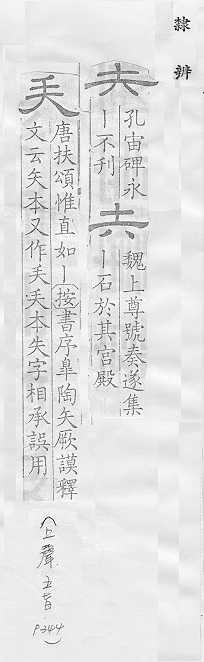 隸辨
夫
孔宙碑永
丨不刊
𡗗
魏上尊號奏遂集
丨石於其宮殿
𡗗
唐扶頌惟直如丨按書序皋陶矢厥謨釋
文云矢本又作𡗗𡗗本失字相承誤用
(上聲五旨 P344)